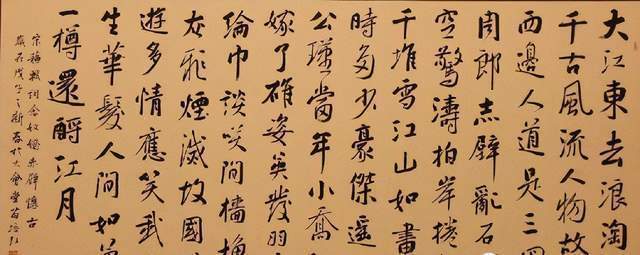 大江東去浪淘
千古風流人物故
西邊人道是三國
周郎赤壁亂石
空驚濤拍岸捲
千堆雪江山如畫
時多少豪傑遥
公瑾當年小喬
嫁了雄姿英發羽
綸巾談笑間檣櫓
灰飛煙滅故國
遊多情應笑我
生華髮人間如
一樽還酹江月
宋蘇軾詞念奴嬌赤壁懷古
歲在戊子之新春於大會堂